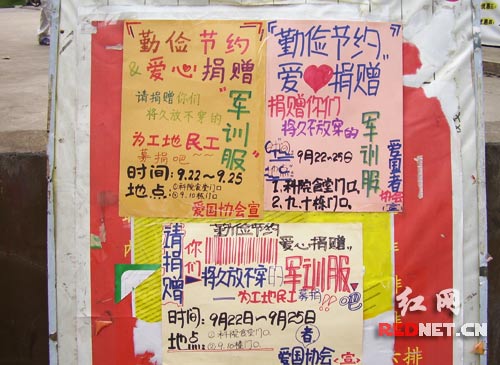 勤俭节约
&爱心捐赠
请捐赠你们
将久放不穿的
"军训服"
为工地民工
募捐吧~~
时间:9.22~9.25
地点:①科院食堂门口
②9.10栋门口
爱国协会宣
"勤俭节约
爱 捐赠"
捐赠你们
将久不放穿的
军训服
9月22~25日
1.科院食堂门口.
2.九十栋门口.
爱国者
协会
请捐赠
你们
勤俭节约
爱心捐赠
将久放不穿的
军训服
——为工地民工募捐吧!!
时间:9月22日~9月25日
地点:①科院食堂门口.
②9.10栋门口.
爱国者协会 宣
排
六排
红网
REDNET.CN